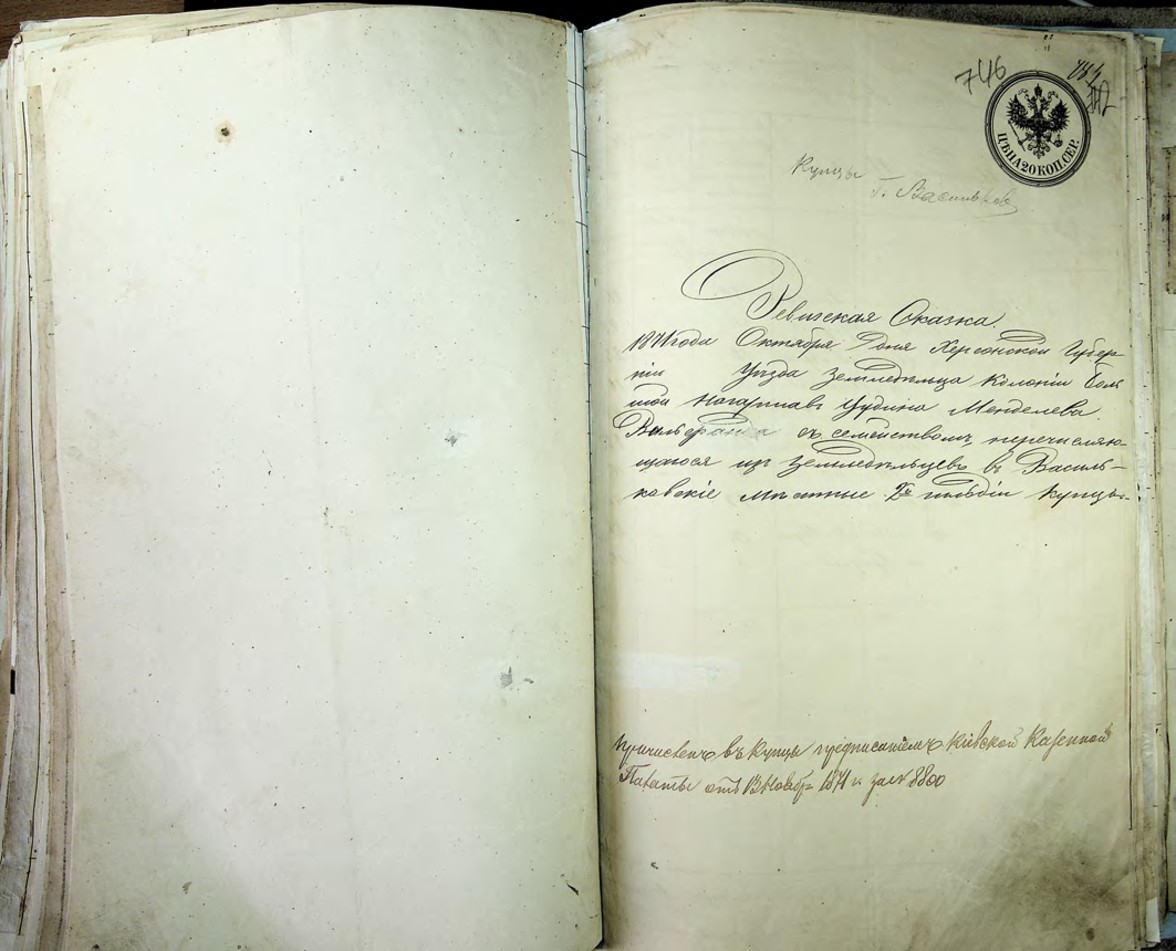 746
ЦѢНА 20 КОП. СЕР.
Купцы
Г. Васильков
Ревизская Сказка.
1871 года Октября дня Херсонской Губер-
ніи Уѣзда Земледѣльца Колоніи Боль
шой Менделева
съ семействомъ, перечисляю-
щагося изъ Земледѣльцевъ въ Василь-
ковскіе мѣстные 2й гильдіи купцы.
Причисленъ въ Купцы предписаніемъ Кіевской Казенной
Палаты отъ 13 Ноябр 1871 г. за № 8800